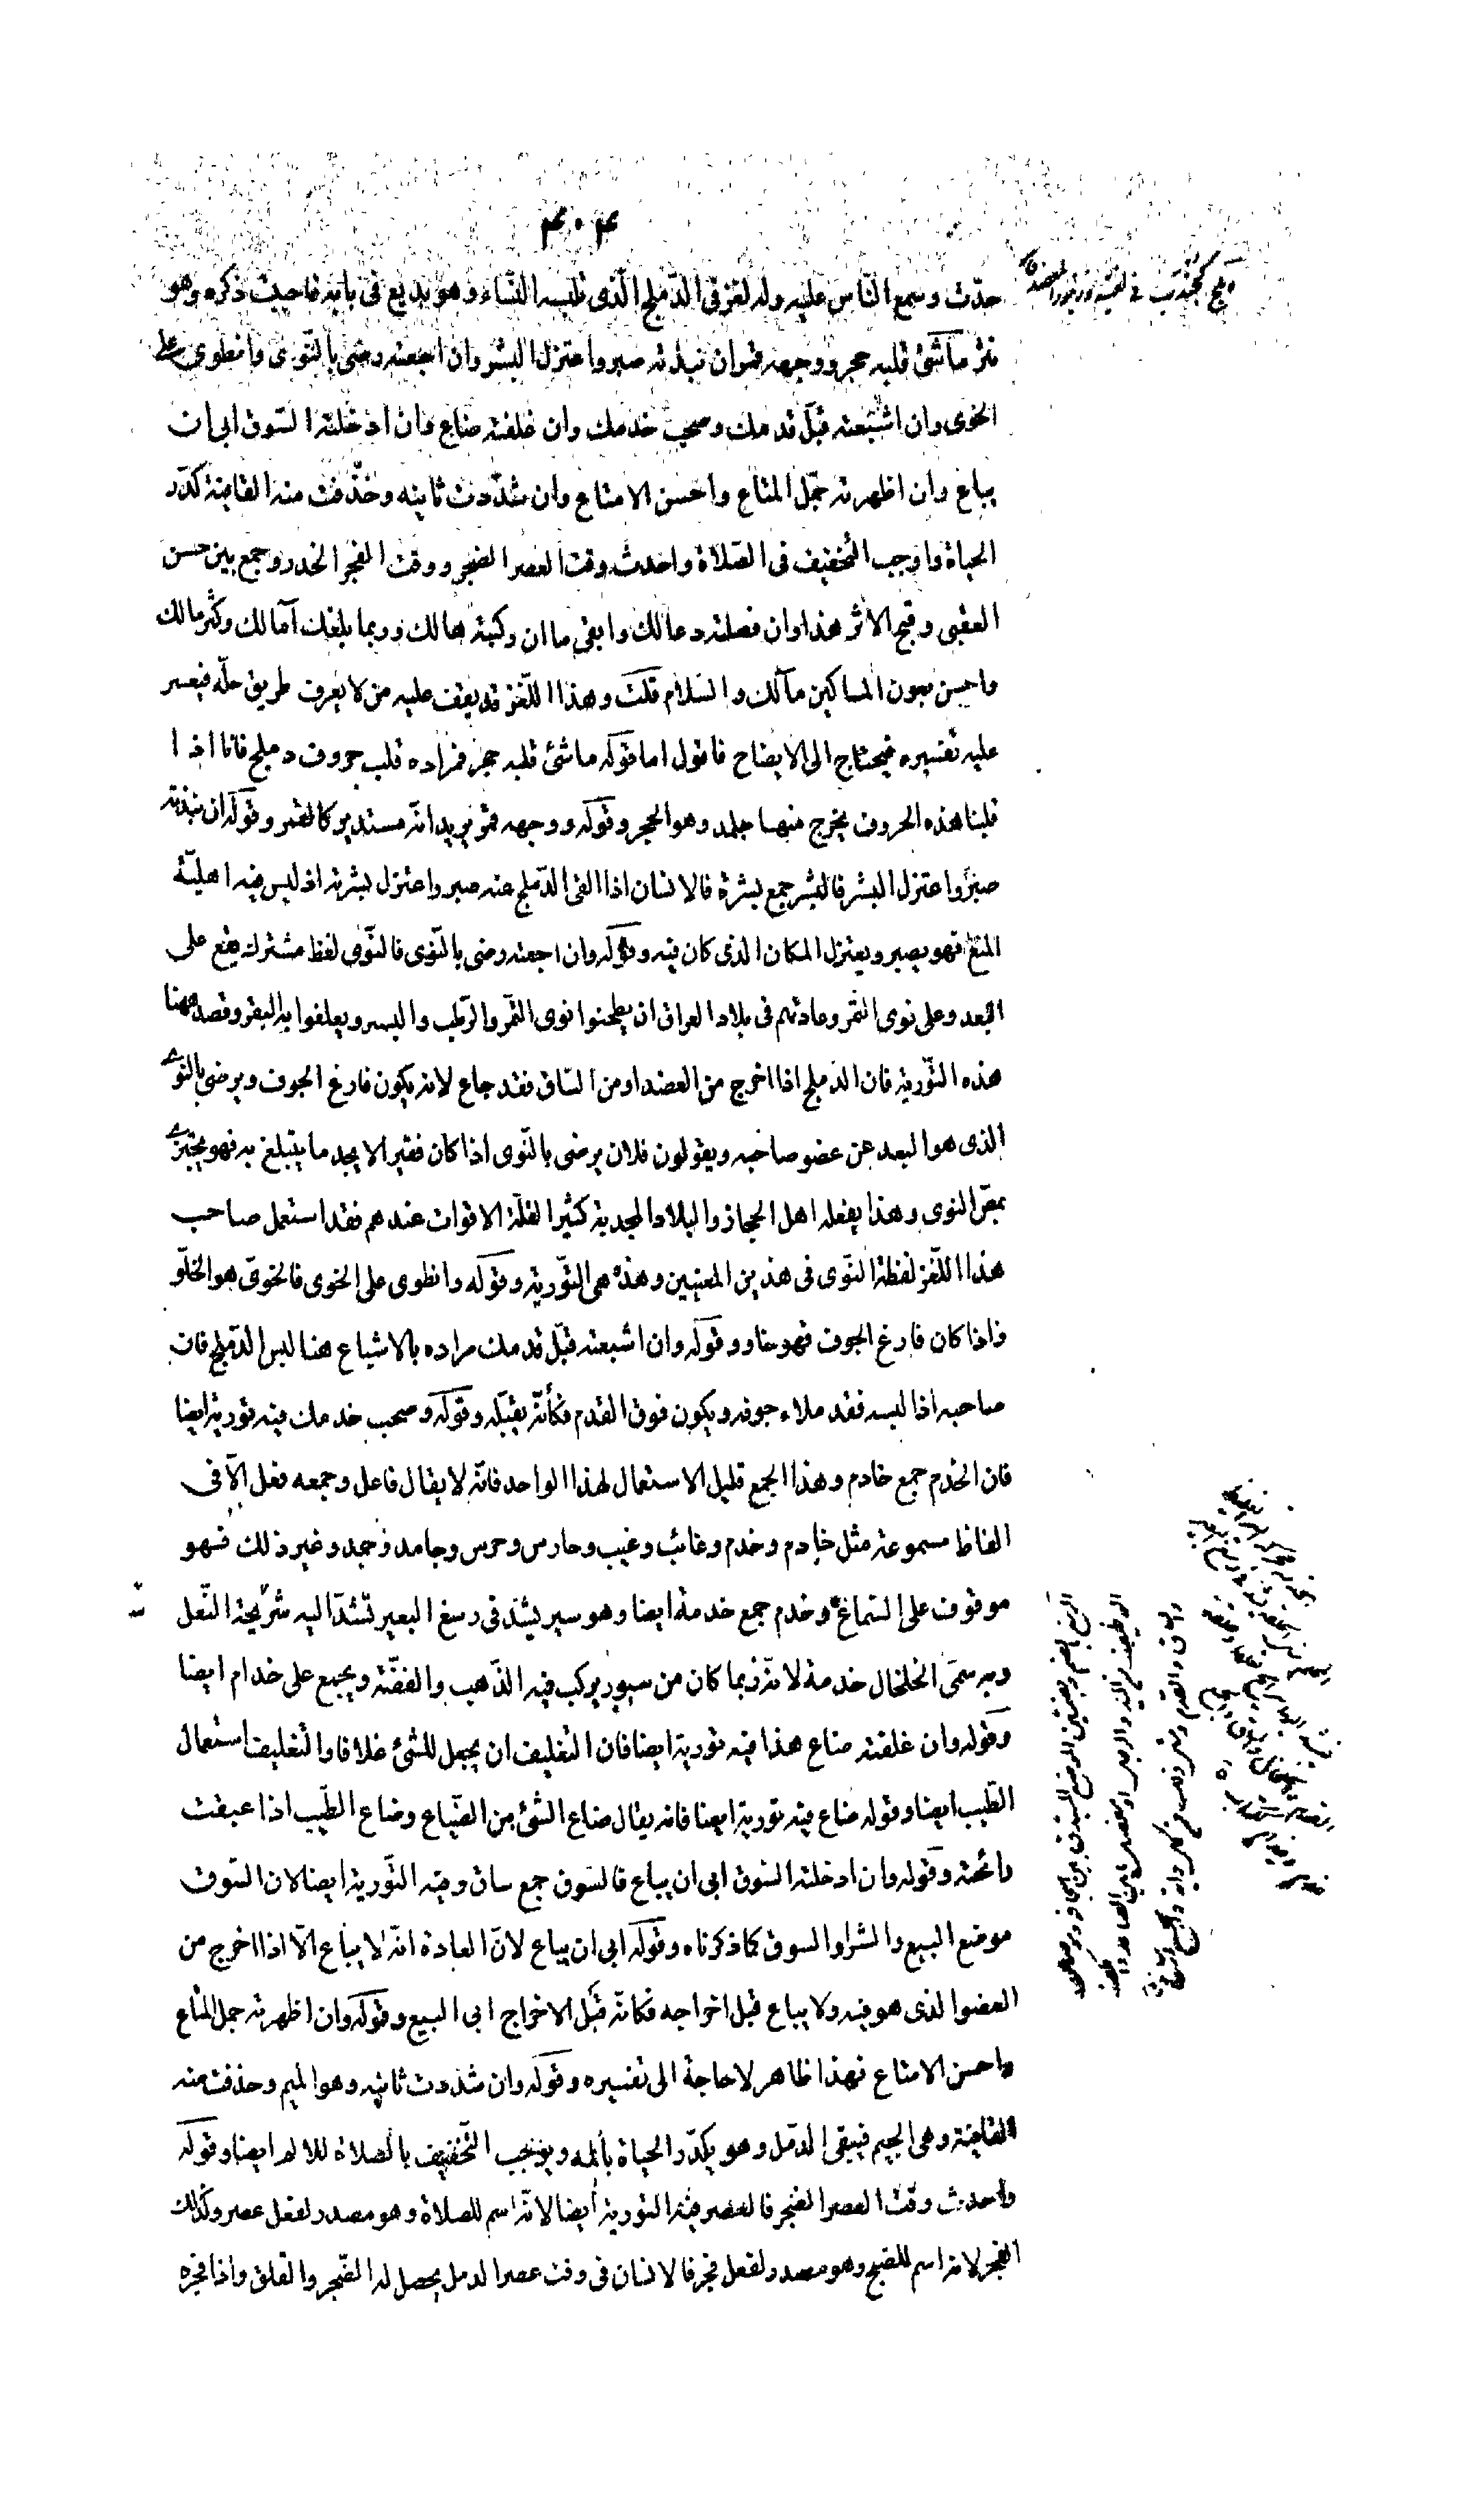 ٤٠٤
حدّث وسمع الناس عليه وله لغز فى الدّملج الّذى تلبسه النّساء وهو بديع فى بابه فاحببت ذكره وهو
نثر ما شئ قلبه حجر ووجهه قمر ان نبذته صبر واعتزل البشر وان اجعته رضى بالنّوى وانطوى على
الخوى وان اشبعته قبّل قدمك وصحب خدمك وان غلفته ضاع وان ادخلته السّوق ابى ان
يباع وان اظهرته جمّل المتاع واحسن الامتاع وان شدّدت ثانيه وحذّفت منه القافية كدّر
الحياة واوجب التّخفيف فى الصّلاة واحدث وقت العصر الضجر ووقت الفجر الخدر وجمع بين حسن
العقبى وقبح الاثر هذا وان فصلته دعا لك وابقى ما ان ركبته هالك وربما بلغك آمالك وكثر مالك
واحسن بعون المساكين مآلك والسّلام قلت وهذا اللّغز قد يقف عليه من لا يعرف طريق حلّه فيعسر
عليه تفسيره فيحتاج الى الايضاح فاقول اما قوله ما شئ قلبه حجر فمراده قلب حروف دملج فانا اذا
قلبنا هذه الحروف يخرج منها جلمد وهو الحجر وقوله ووجهه قمر يريد انّه مستدير كالقمر وقوله ان نبذته
صبر واعتزل البشر فالبشر جمع بشرة فالانسان اذا القى الدّملج عنه صبر واعتزل بشرته اذ ليس فيه اهليّة
المنع فهو يصبر ويعتزل المكان الذى كان فيه وقوله وان اجعته رضى بالنّوى فالنّوى لفظ مشترك يقع على
البعد وعلى نوى التمر وعادتهم فى بلاد العراق ان يطحنوا نوى التّمر والرّطب والبسر ويعلفوا به البقر وقصد ههنا
هذه التّورية فان الدّملج اذا اخرج من العضد او من السّاق فقد جاع لانه يكون فارغ الجوف ويرضى بالنّوى
الذى هو البعد عن عضو صاحبه ويقولون فلان يرضى بالنّوى اذا كان فقيرا لا يجد ما يتبلغ به فهو يجتزى
بمصّ النوى وهذا يفعله اهل الحجاز والبلاد المجدبة كثيرا لقلّة الاقوات عندهم فقد استعمل صاحب
هذا اللّغز لفظة النّوى فى هذين المعنيين وهذه هى التّورية وقوله وانطوى على الخوى فالخوى هو الخلّو
واذا كان فارغ الجوف فهو خاو وقوله وان اشبعته قبّل قدمك مراده بالاشباع هنا لبس الدّملج فان
صاحبه اذا لبسه فقد ملاء جوفه ويكون فوق القدم فكأنّه يقبّله وقوله وصحب خدمك فيه تورية ايضا
فان الخدم جمع خادم وهذا الجمع قليل الاستعمال لهذا الواحد فانّه لا يقال فاعل وجمعه فعل الّا فى
الفاظ مسموعة مثل خادم وخدم وغائب وغيب وحارس وحرس وجامد وجمد وغير ذلك فهو
موقوف على السّماع وخدم جمع خدمة ايضا وهو سير يشدّ فى رسغ البعير تشدّ اليه شريحة النّعل
وبه سمّى الخلخال خدمة لانّه ربما كان من سيور يركب فيه الذّهب والفضّة ويجمع على خدام ايضا
وقوله وان غلفته ضاع هذا فيه تورية ايضا فان التغليف ان يجعل للشئ غلافا والتغليف استعمال
الطّيب ايضا وقوله ضاع فيه تورية ايضا فانه يقال ضاع الشئ من الضّياع وضاع الطّيب اذا عبقت
رائحته وقوله وان ادخلته السّوق ابى ان يباع فالسّوق جمع ساق وفيه التّورية ايضا لان السّوق
موضع البيع والشرا والسوق كما ذكرناه وقوله ابى ان يباع لانّ العادة انّه لا يباع الّا اذا اخرج من
العضو الذى هو فيه ولا يباع قبل اخراجه فكانّه قبل الاخراج ابى البيع وقوله وان اظهرته جمل المتاع
واحسن الامتاع فهذا ظاهر لا حاجة الى تفسيره وقوله وان شدّدت ثانيه وهو الميم وحذفت منه
القافية وهى الجيم فيبقى الدّمل وهو يكدّر الحياة بألمه ويوجب التّخفيف بالصلاة للالم ايضا وقوله
واحدث وقت العصر الضجر فالعصر فيه التورية أيضا لانّه اسم للصلاة وهو مصدر لفعل عصر وكذلك
الفجر لانه اسم للصبح وهو مصدر لفعل فجر فالانسان فى وقت عصر الدمل يحصل له الضّجر والقلق واذا فجره